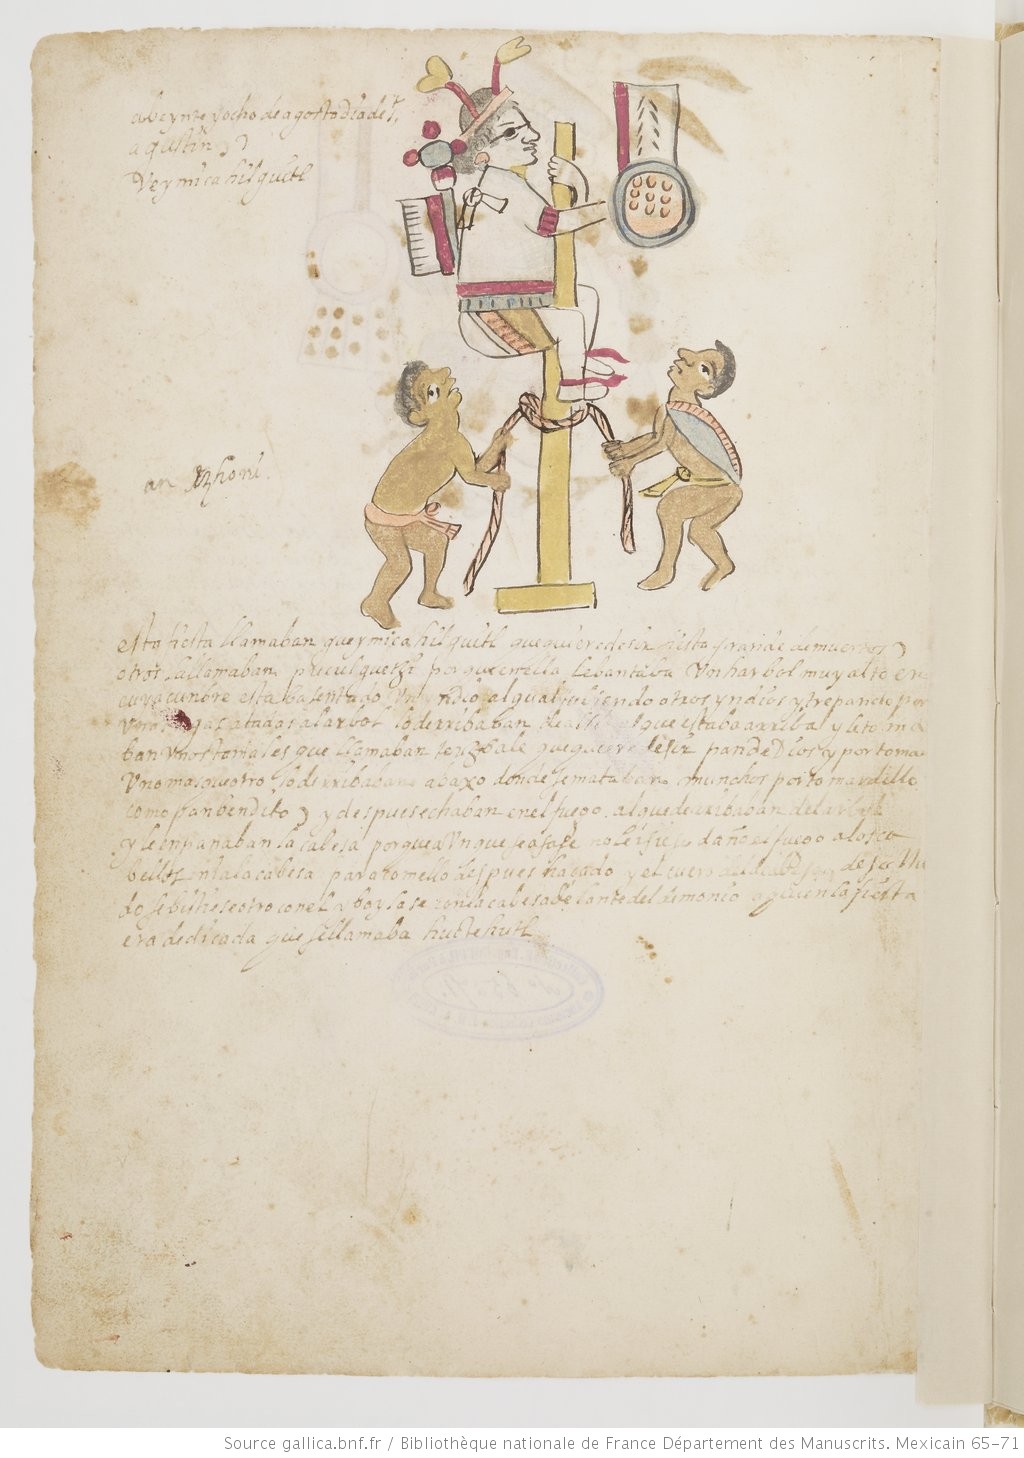 a beynte y ocho de agosto dia de s.
agustin
Veymicahilguitl
an
esta fiesta llamaban gueymicahilguitl que quiere desir fiesta grande de muertos
otros la llamaban porque en ella lebantaban Un harbol muy alto en
cuya cunbre estaba sentado Un yndio al qual subiendo otros yndios y trepando por
Unas sogas atadas al arbol lo derribaban de alli al que estaba arriba y le toma
ban Unos tamales que llamaban que quiere desir pan de Dios y por tomar
Uno mas que otro lo derribaban abaxo donde se mataban munchos por tomar dello
como pan bendito y despues echaban en el fuego al que derribaban del arbol
y le enpanaban la cabesa porque aUnque se asase no le hisiese daño el fuego a los ca
bellos ni a la cabesa para comello despues asado y el cuero de la cabesa
do se bistiese otro con el delante del demonio a quien la fiesta
era dedicada que se llamaba
Source gallica.bnf.fr / Bibliothèque nationale de France Département des Manuscrits. Mexicain 65-71